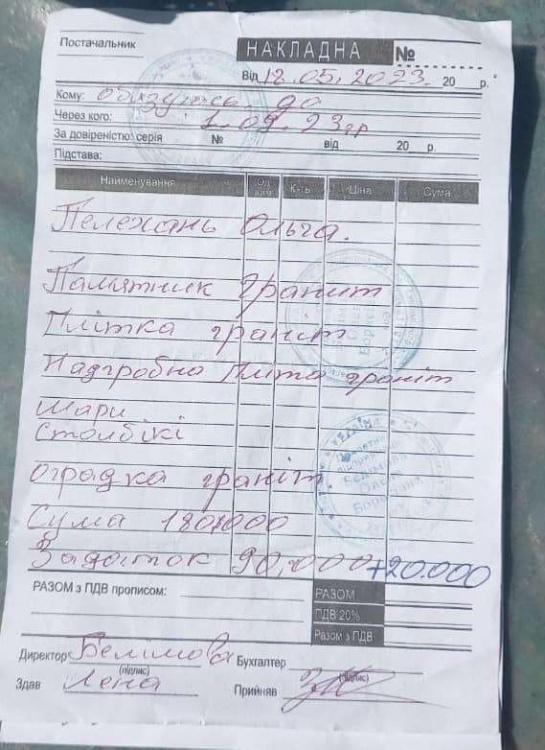 Постачальник
НАКЛАДНА №
Від 12.05.2023. 20 р.
Кому: обизуюсь до
Через кого: 1.09.23гр
За довіреністю: серія № від 20 р.
Підстава:
Найменування Од. вим. К-ть Ціна Сума
Пелехань Ольга.
Памятник граніт
Плітка граніт
Надгробна Пліта граніт
шари
Столбікі
оградка граніт.
Сума 180.000
Задаток 90.000 +20.000
РАЗОМ з ПДВ прописом:
РАЗОМ
ПДВ 20%
Разом з ПДВ
Директор Белімова Бухгалтер
(підпис) (підпис)
Здав Лєна Прийняв